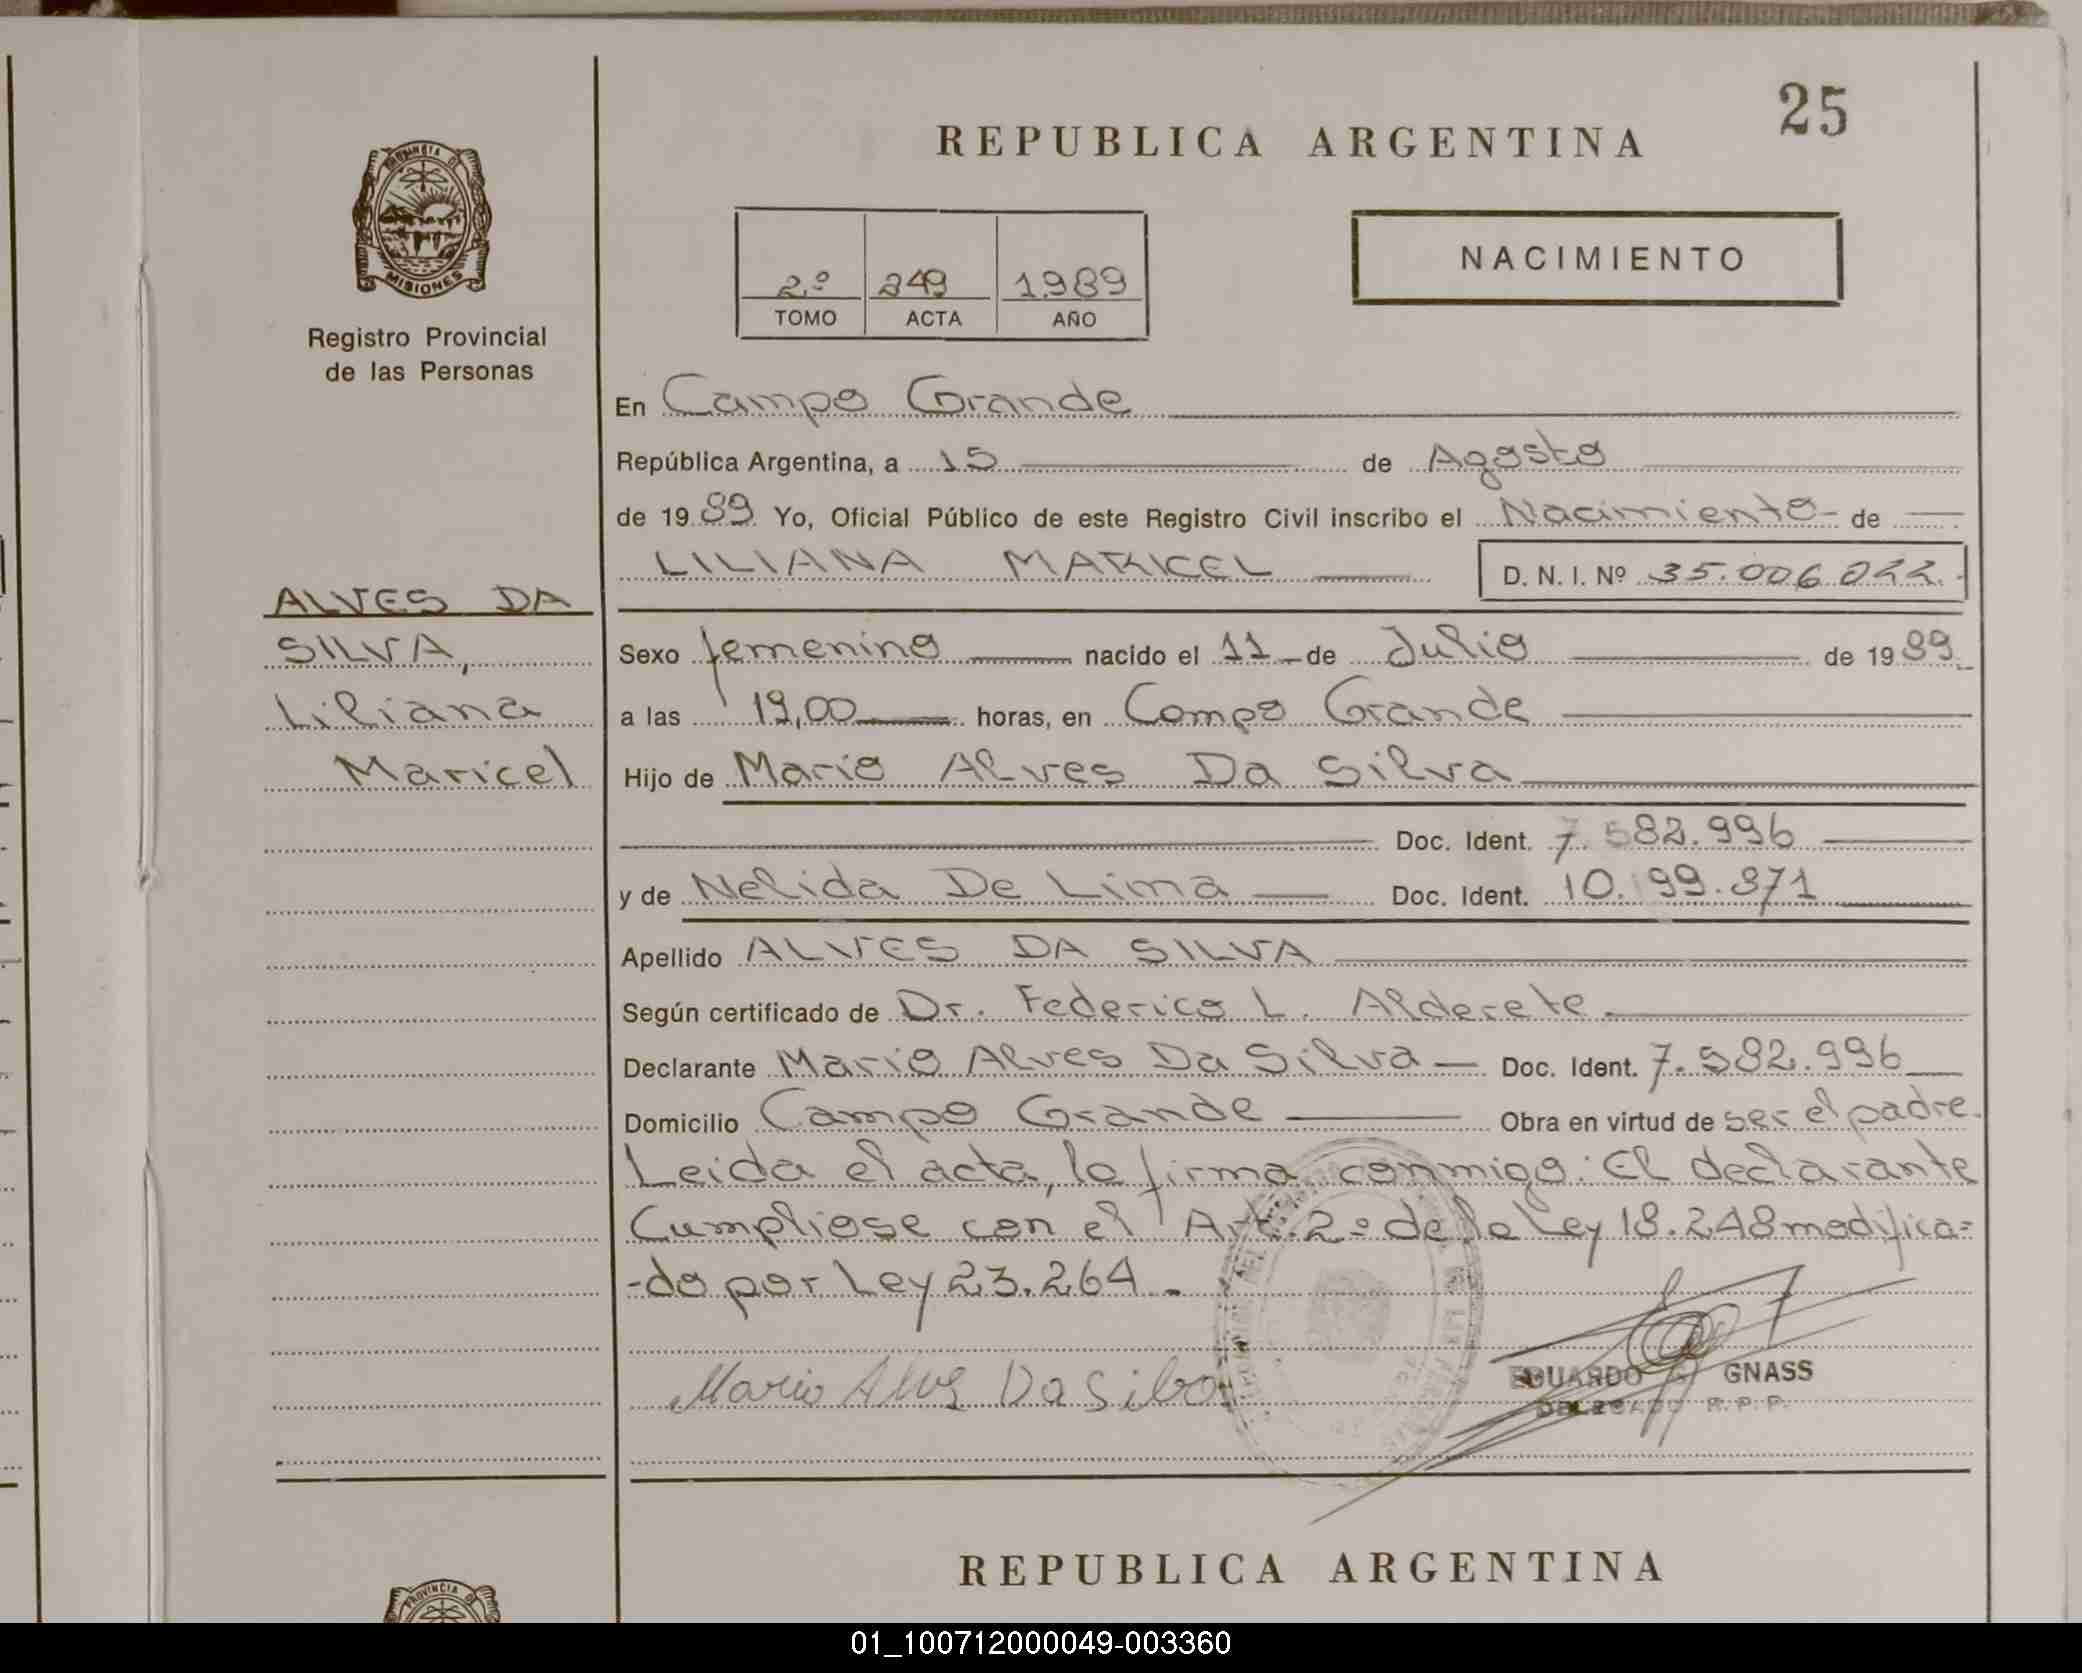 25
REPUBLICA ARGENTINA
NACIMIENTO
2º 249 1989
TOMO ACTA AÑO
PROVINCIA D
MISIONES
Registro Provincial
de las Personas
En Campo Grande
República Argentina, a 15 de Agosto
de 1989 Yo, Oficial Público de este Registro Civil inscribo el Nacimiento de
LILIANA MARICEL D. N. I. Nº 35.006.022
ALVES DA
SILVA,
Liliana
Maricel
Sexo femenino nacido el 11 de Julio de 1989
a las 19,00 horas, en Campo Grande
Hijo de Mario Alves Da Silva
Doc. Ident. 7.582.996
y de Nelida De Lima Doc. Ident. 10. 99.371
Apellido ALVES DA SILVA
Según certificado de Dr. Federico L. Alderete.
Declarante Mario Alves Da Silva Doc. Ident. 7.582.996
Domicilio Campo Grande Obra en virtud de ser el padre.
Leida el acta, la firma conmigo: El declarante
Cumpliose con el Art. 2º de la Ley 18.248 modifica=
-do por Ley 23.264.-
Mario Alves Da Silva
EDUARDO GNASS
DELEGADO R.P.P.
REPUBLICA ARGENTINA
PROVINCIA
01_100712000049-003360